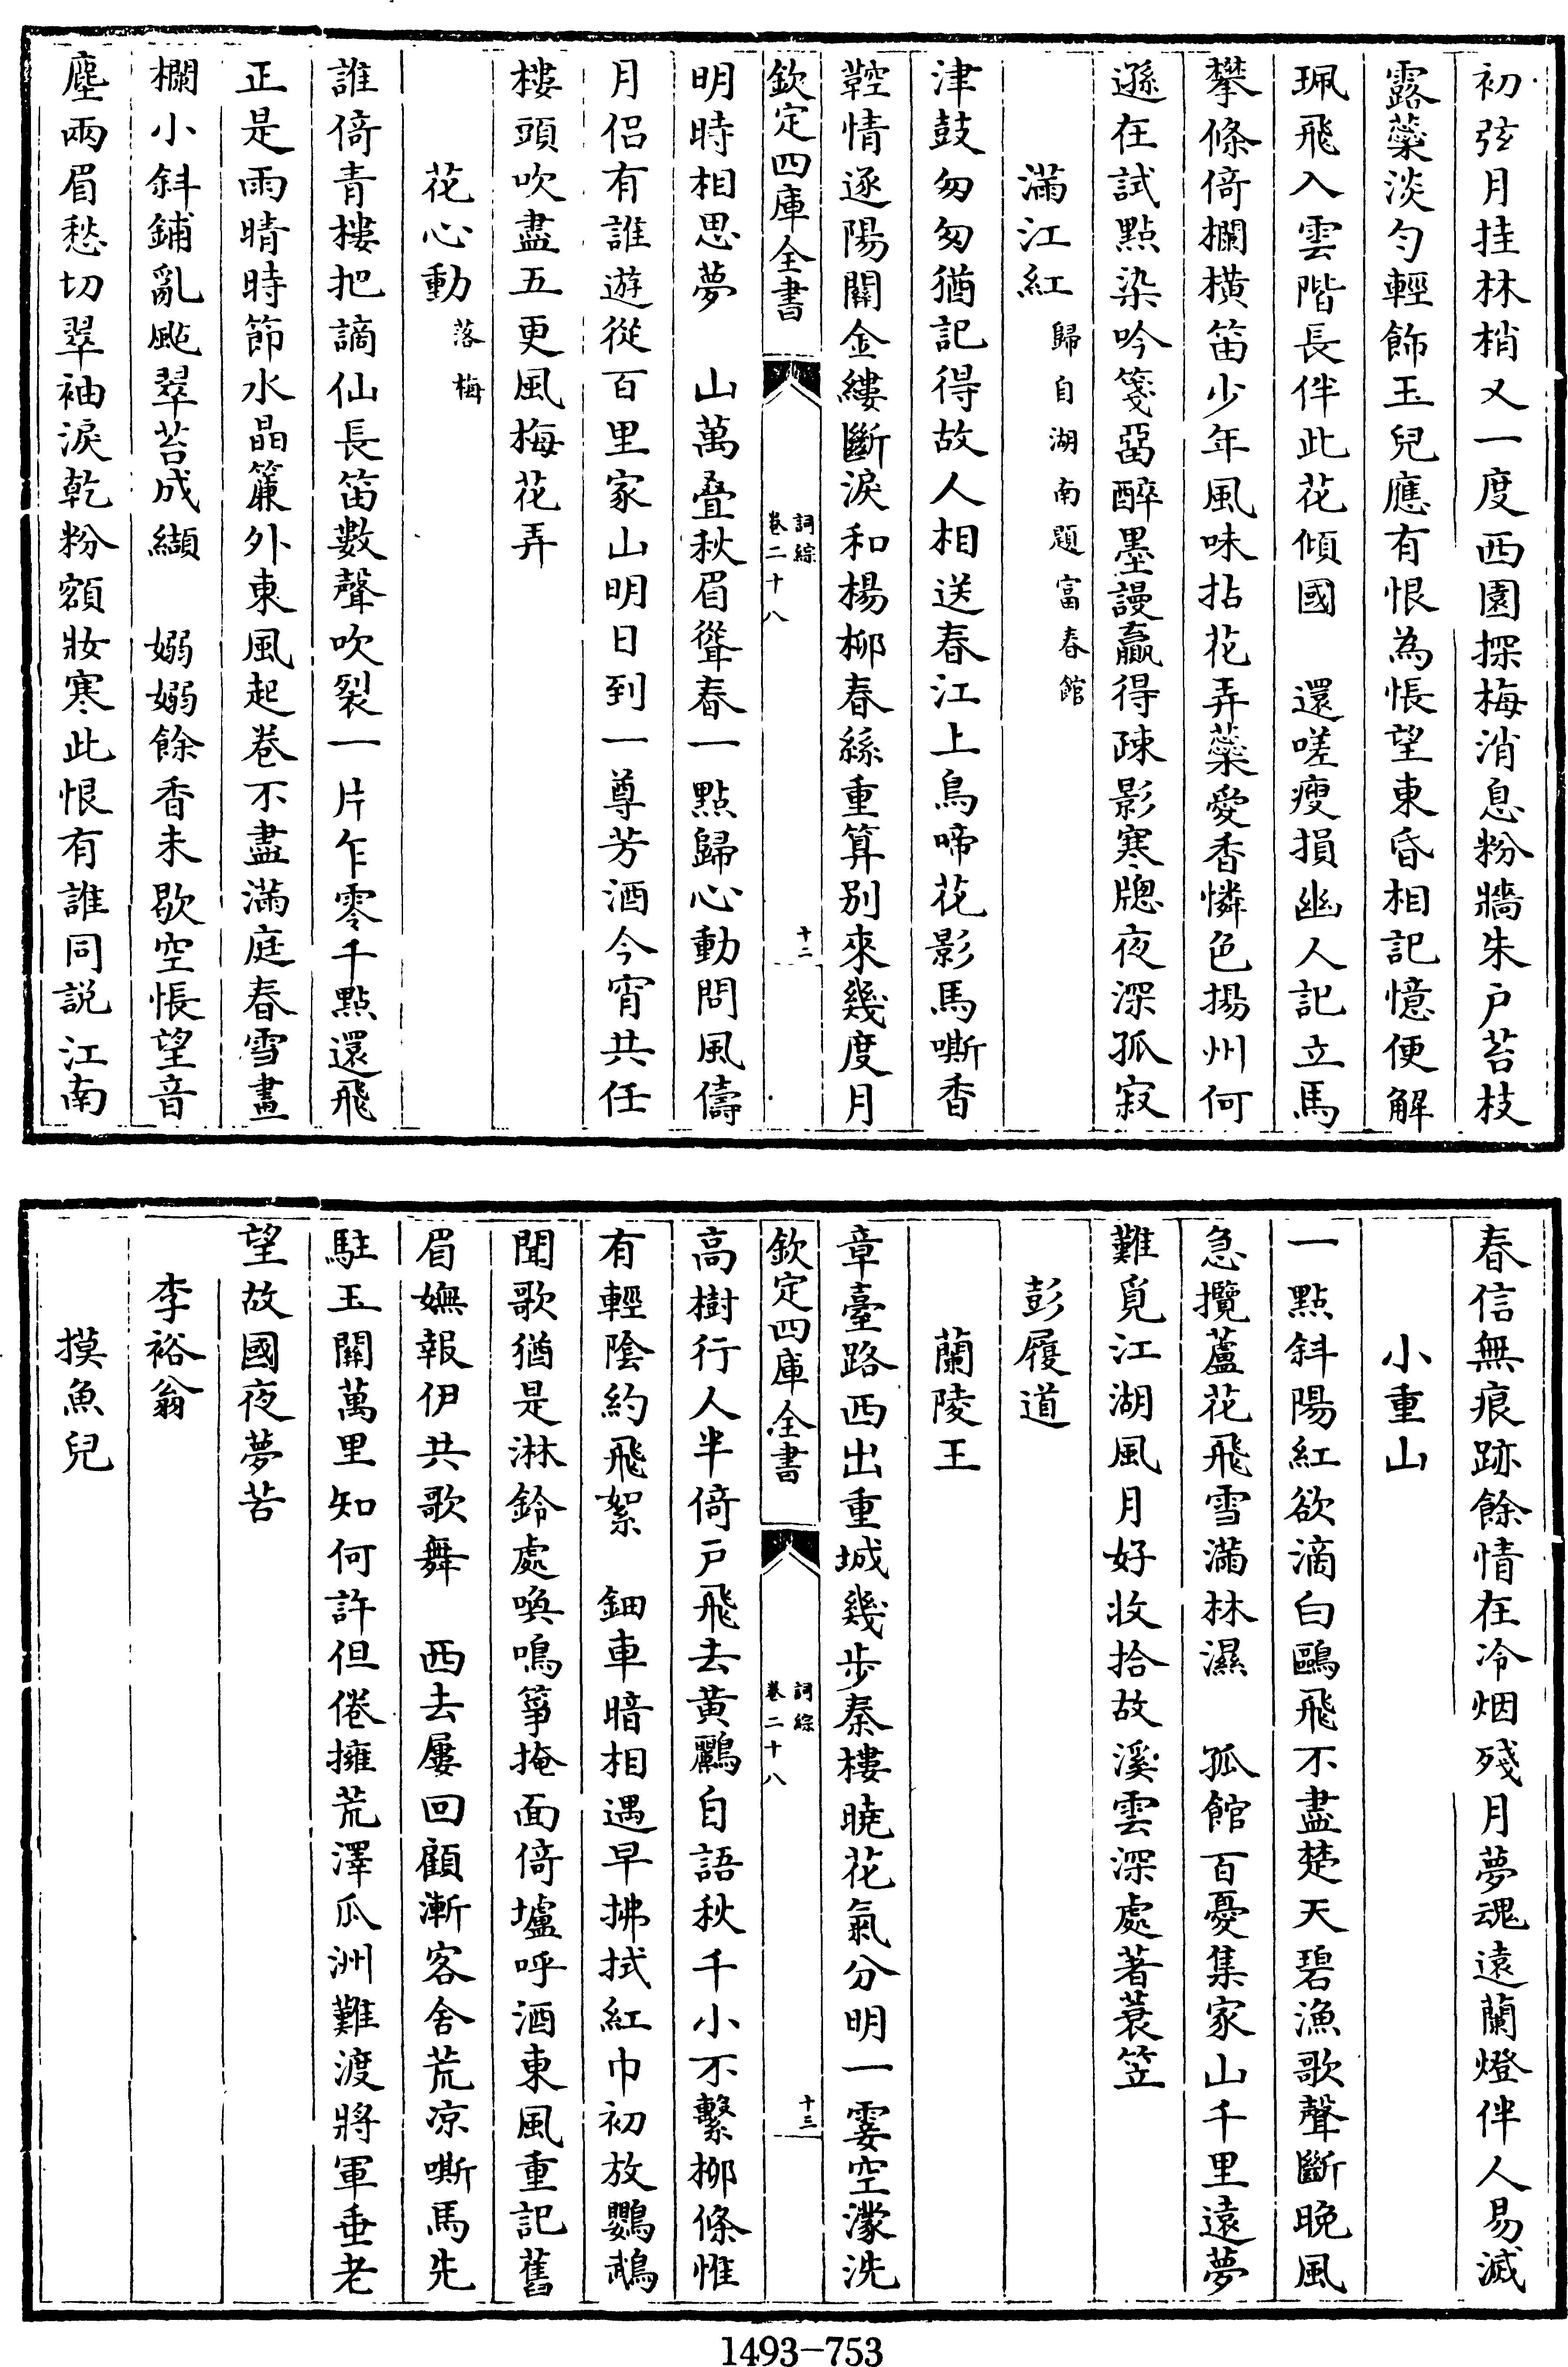 初弦月挂林梢又一度西園探梅消息粉牆朱户苔枝
露蘂淡勻輕飾玉兒應有恨為悵望東昏相記憶便解
珮飛入雲階長伴此花傾國　還嗟瘦損幽人記立馬
攀條倚欄橫笛少年風味拈花弄蘂愛香憐色揚州何
遜在試點染吟箋畱醉墨謾贏得疎影寒牕夜深孤寂
滿江紅歸自湖南題富春館
津鼓匆匆猶記得故人相送春江上鳥啼花影馬嘶香
鞚情逐陽關金縷斷淚和楊柳春絲重算别來幾度月
欽定四庫全書　詞綜卷二十八　十二
明時相思夢　山萬疊秋眉聳春一點歸心動問風儔
月侶有誰遊從百里家山明日到一尊芳酒今宵共任
樓頭吹盡五更風梅花弄
花心動落梅
誰倚青樓把謫仙長笛數聲吹裂一片乍零千點還飛
正是雨晴時節水晶簾外東風起卷不盡滿庭春雪畫
欄小斜鋪亂颭翠苔成纈　嫋嫋餘香未歇空悵望音
塵兩眉愁切翠袖淚乾粉額妝寒此恨有誰同説江南
春信無痕跡餘情在冷烟殘月夢魂遠蘭燈伴人易滅
小重山
一點斜陽紅欲滴白鷗飛不盡楚天碧漁歌聲斷晚風
急攪蘆花飛雪滿林濕　孤館百憂集家山千里遠夢
難覓江湖風月好收拾故溪雲深處著蓑笠
彭履道
蘭陵王
章臺路西出重城幾步秦樓曉花氣分明一霎空濛洗
欽定四庫全書　詞綜卷二十八　十三
高樹行人半倚戸飛去黄鸝自語秋千小不繫柳條惟
有輕陰約飛絮　鈿車暗相遇早拂拭紅巾初放鸚鵡
聞歌猶是淋鈴處喚鳴箏掩面倚壚呼酒東風重記舊
眉嫵報伊共歌舞　西去屢回顧漸客舍荒凉嘶馬先
駐玉關萬里知何許但倦擁荒澤瓜洲難渡將軍垂老
望故國夜夢苦
李裕翁
摸魚兒
1493—753